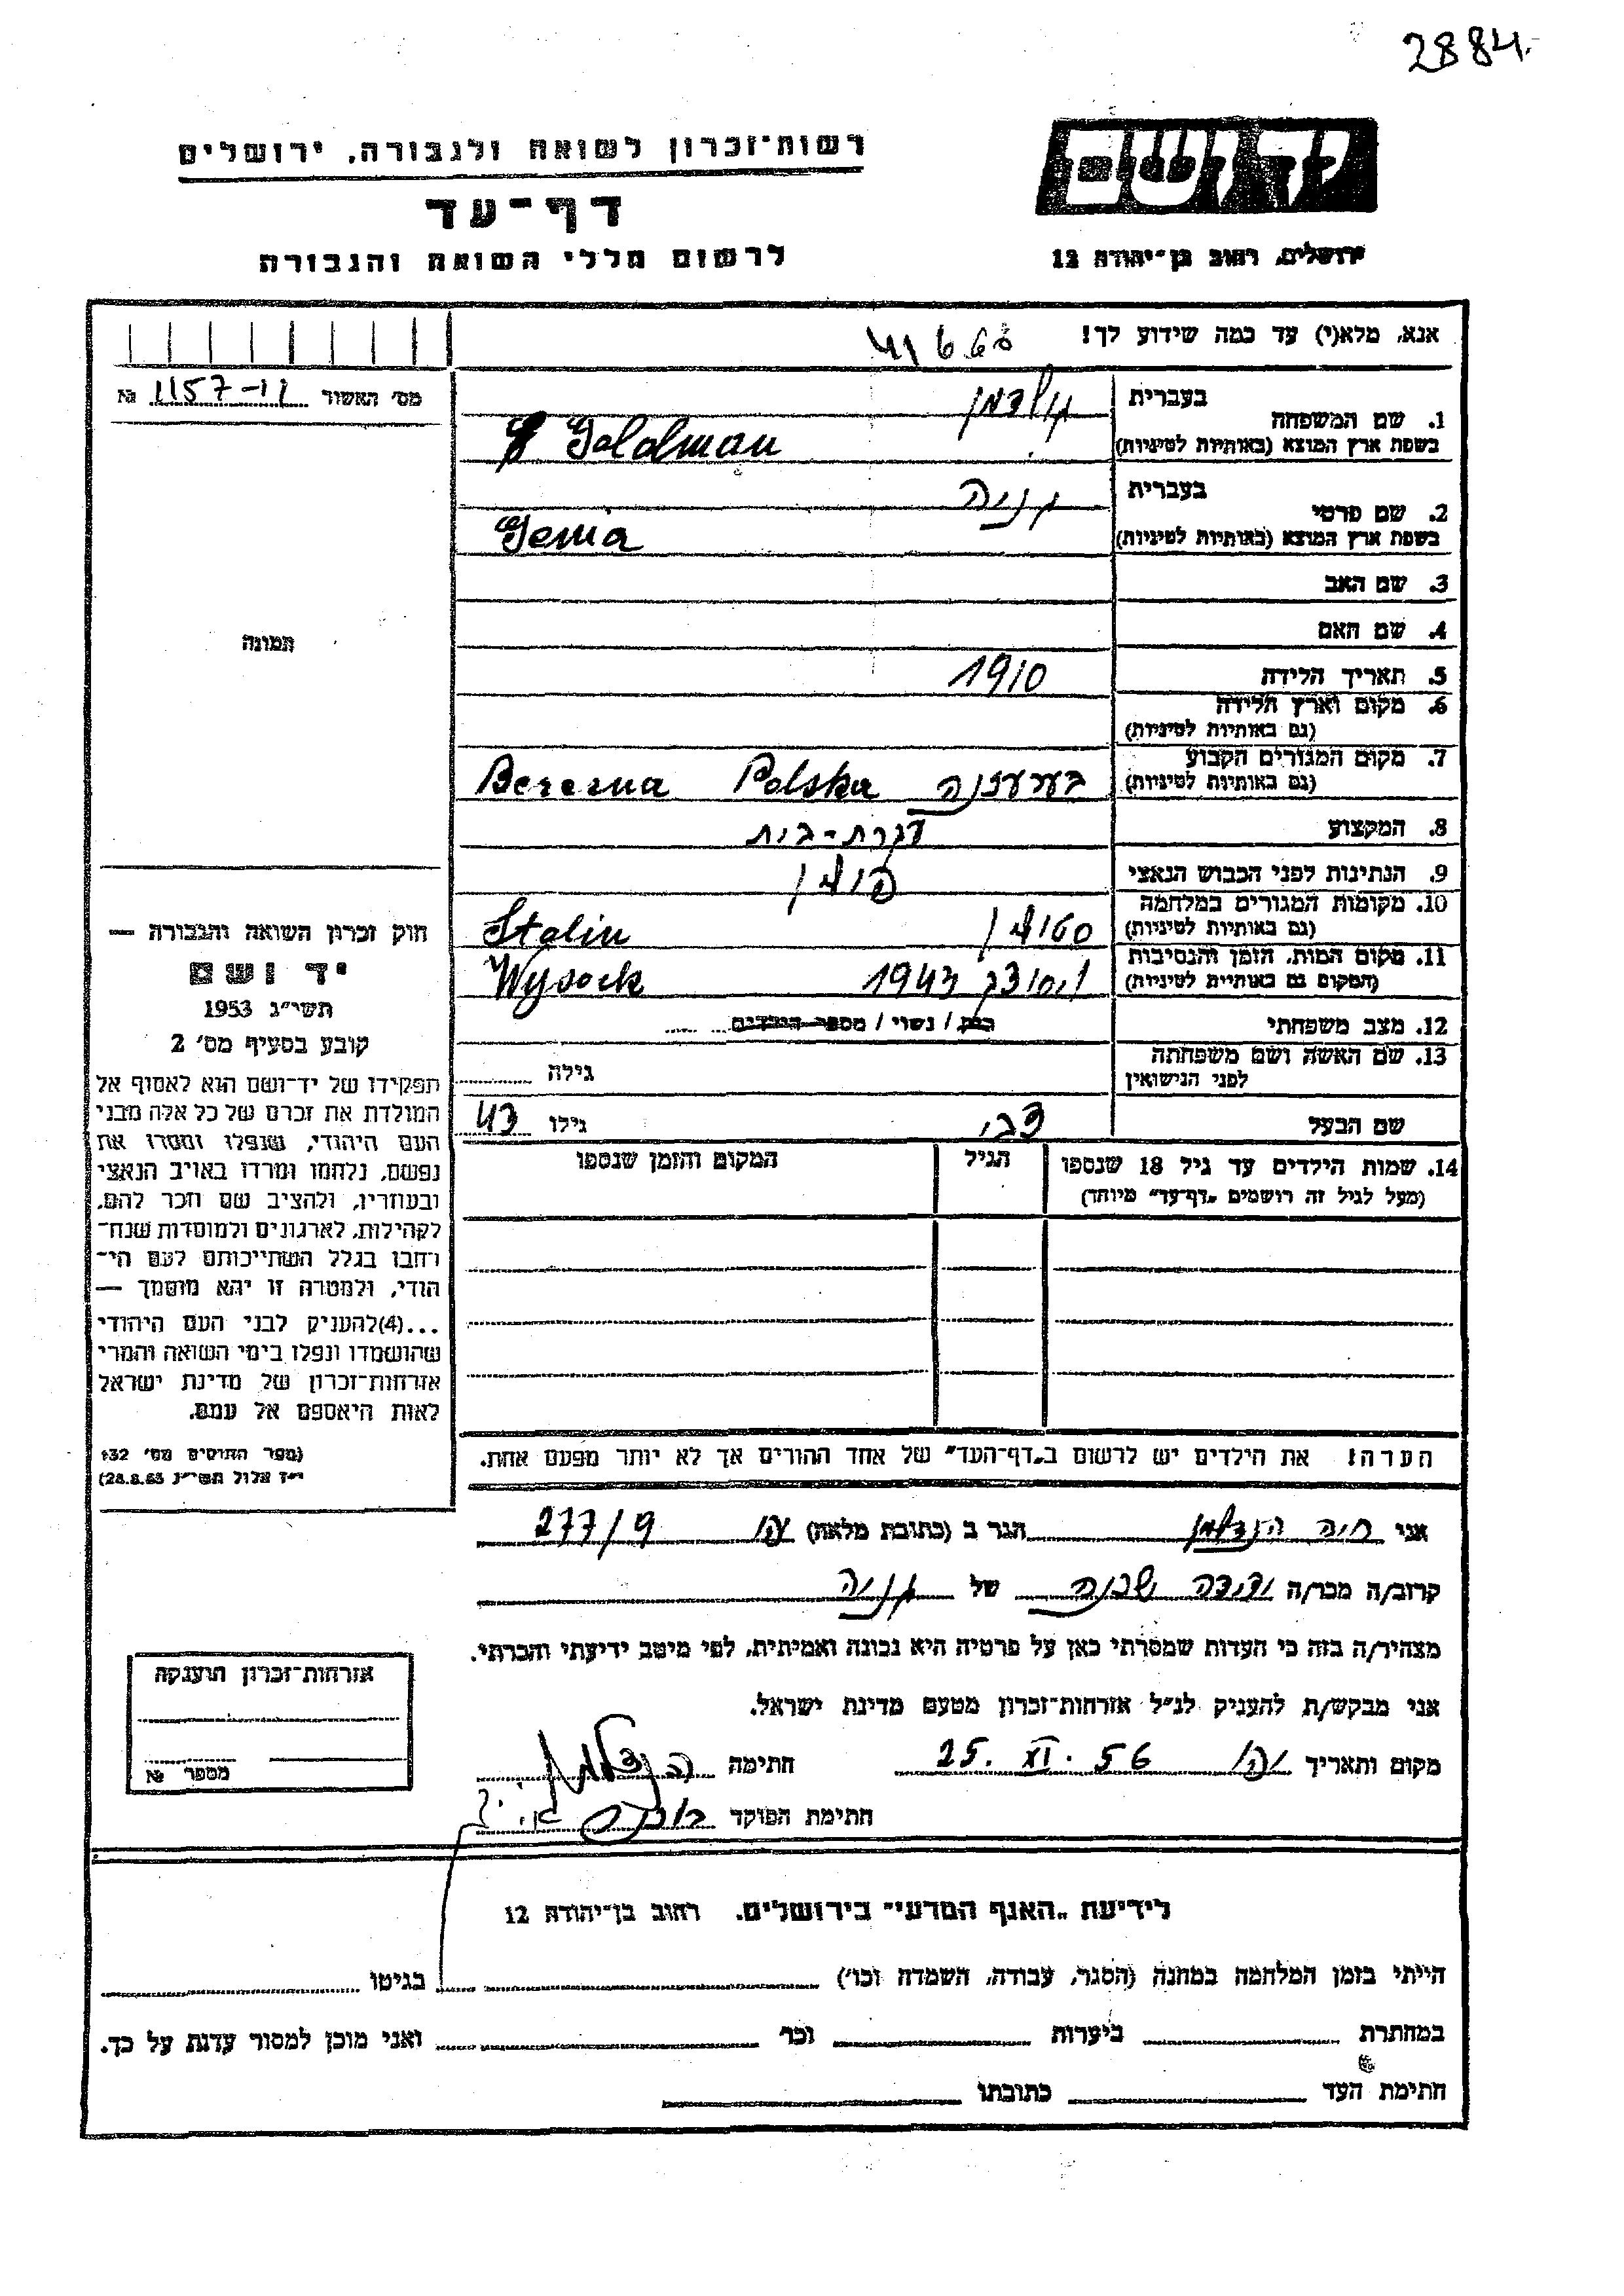 2884.
רשות־זכרון לשואה ולגבורה, ירושלים
דף־עד
לרשום חללי השואה והגבורה
יד ושם
ירושלים, רחוב בן־יהודה 12
אנא, מלא(י) עד כמה שידוע לך!
מס׳ האשור 1157-11 №
1. שם המשפחה בעברית גולדמן
בשפת ארץ המוצא (באותיות לטיניות) Goldman
2. שם פרטי בעברית גניה
בשפת ארץ המוצא (באותיות לטיניות) Genia
3. שם האב
4. שם האם
5. תאריך הלידה 1910
6. מקום וארץ הלידה
(גם באותיות לטיניות)
7. מקום המגורים הקבוע
(גם באותיות לטיניות) Berezna Polska
8. המקצוע עקרת-בית
9. הנתינות לפני הכבוש הנאצי פולין
10. מקומות המגורים במלחמה
(גם באותיות לטיניות) סטולין Stolin
11. מקום המות, הזמן והנסיבות
(המקום גם באותיות לטיניות) 1943 Wysock
12. מצב משפחתי רווק / נשוי / מספר הילדים
13. שם האשה ושם משפחתה
לפני הנישואין גילה
שם הבעל צבי גילו 43
14. שמות הילדים עד גיל 18 שנספו הגיל המקום והזמן שנספו
(מעל לגיל זה רושמים „דף־עד” מיוחד)
הערה: את הילדים יש לרשום ב„דף־העד” של אחד ההורים אך לא יותר מפעם אחת.
תמונה
חוק זכרון השואה והגבורה —
יד ושם
תשי״ג 1953
קובע בסעיף מס׳ 2
תפקידו של יד־ושם הוא לאסוף אל
המולדת את זכרם של כל אלה מבני
העם היהודי, שנפלו ומסרו את
נפשם, נלחמו ומרדו באויב הנאצי
ובעוזריו, ולהציב שם וזכר להם,
לקהילות, לארגונים ולמוסדות שנח־
רחבו בגלל השתייכותם לעם הי־
הודי, ולמטרה זו יהא מוסמך —
...(4)להעניק לבני העם היהודי
שהושמדו ונפלו בימי השואה והמרי
אזרחות־זכרון של מדינת ישראל
לאות היאספם אל עמם.
(ספר החוקים מס׳ 132
י״ז אלול תשי״ג 28.8.53)
אני חיה הנדלמן הגר ב (כתובת מלאה) 277/9
קרוב/ה מכר/ה ידידה שכנה של גניה
מצהיר/ה בזה כי העדות שמסרתי כאן על פרטיה היא נכונה ואמיתית, לפי מיטב ידיעתי והכרתי.
אני מבקש/ת להעניק לנ״ל אזרחות־זכרון מטעם מדינת ישראל.
מקום ותאריך 25. XI. 56 חתימה הנדלמן
חתימת הפוקד
אזרחות־זכרון הוענקה
מספר №
לידיעת „האגף המדעי” בירושלים, רחוב בן־יהודה 12
הייתי בזמן המלחמה במחנה (הסגר, עבודה, השמדה וכו׳) בגיטו
במחתרת ביערות וכו׳ ואני מוכן למסור עדות על כך.
חתימת העד כתובתו